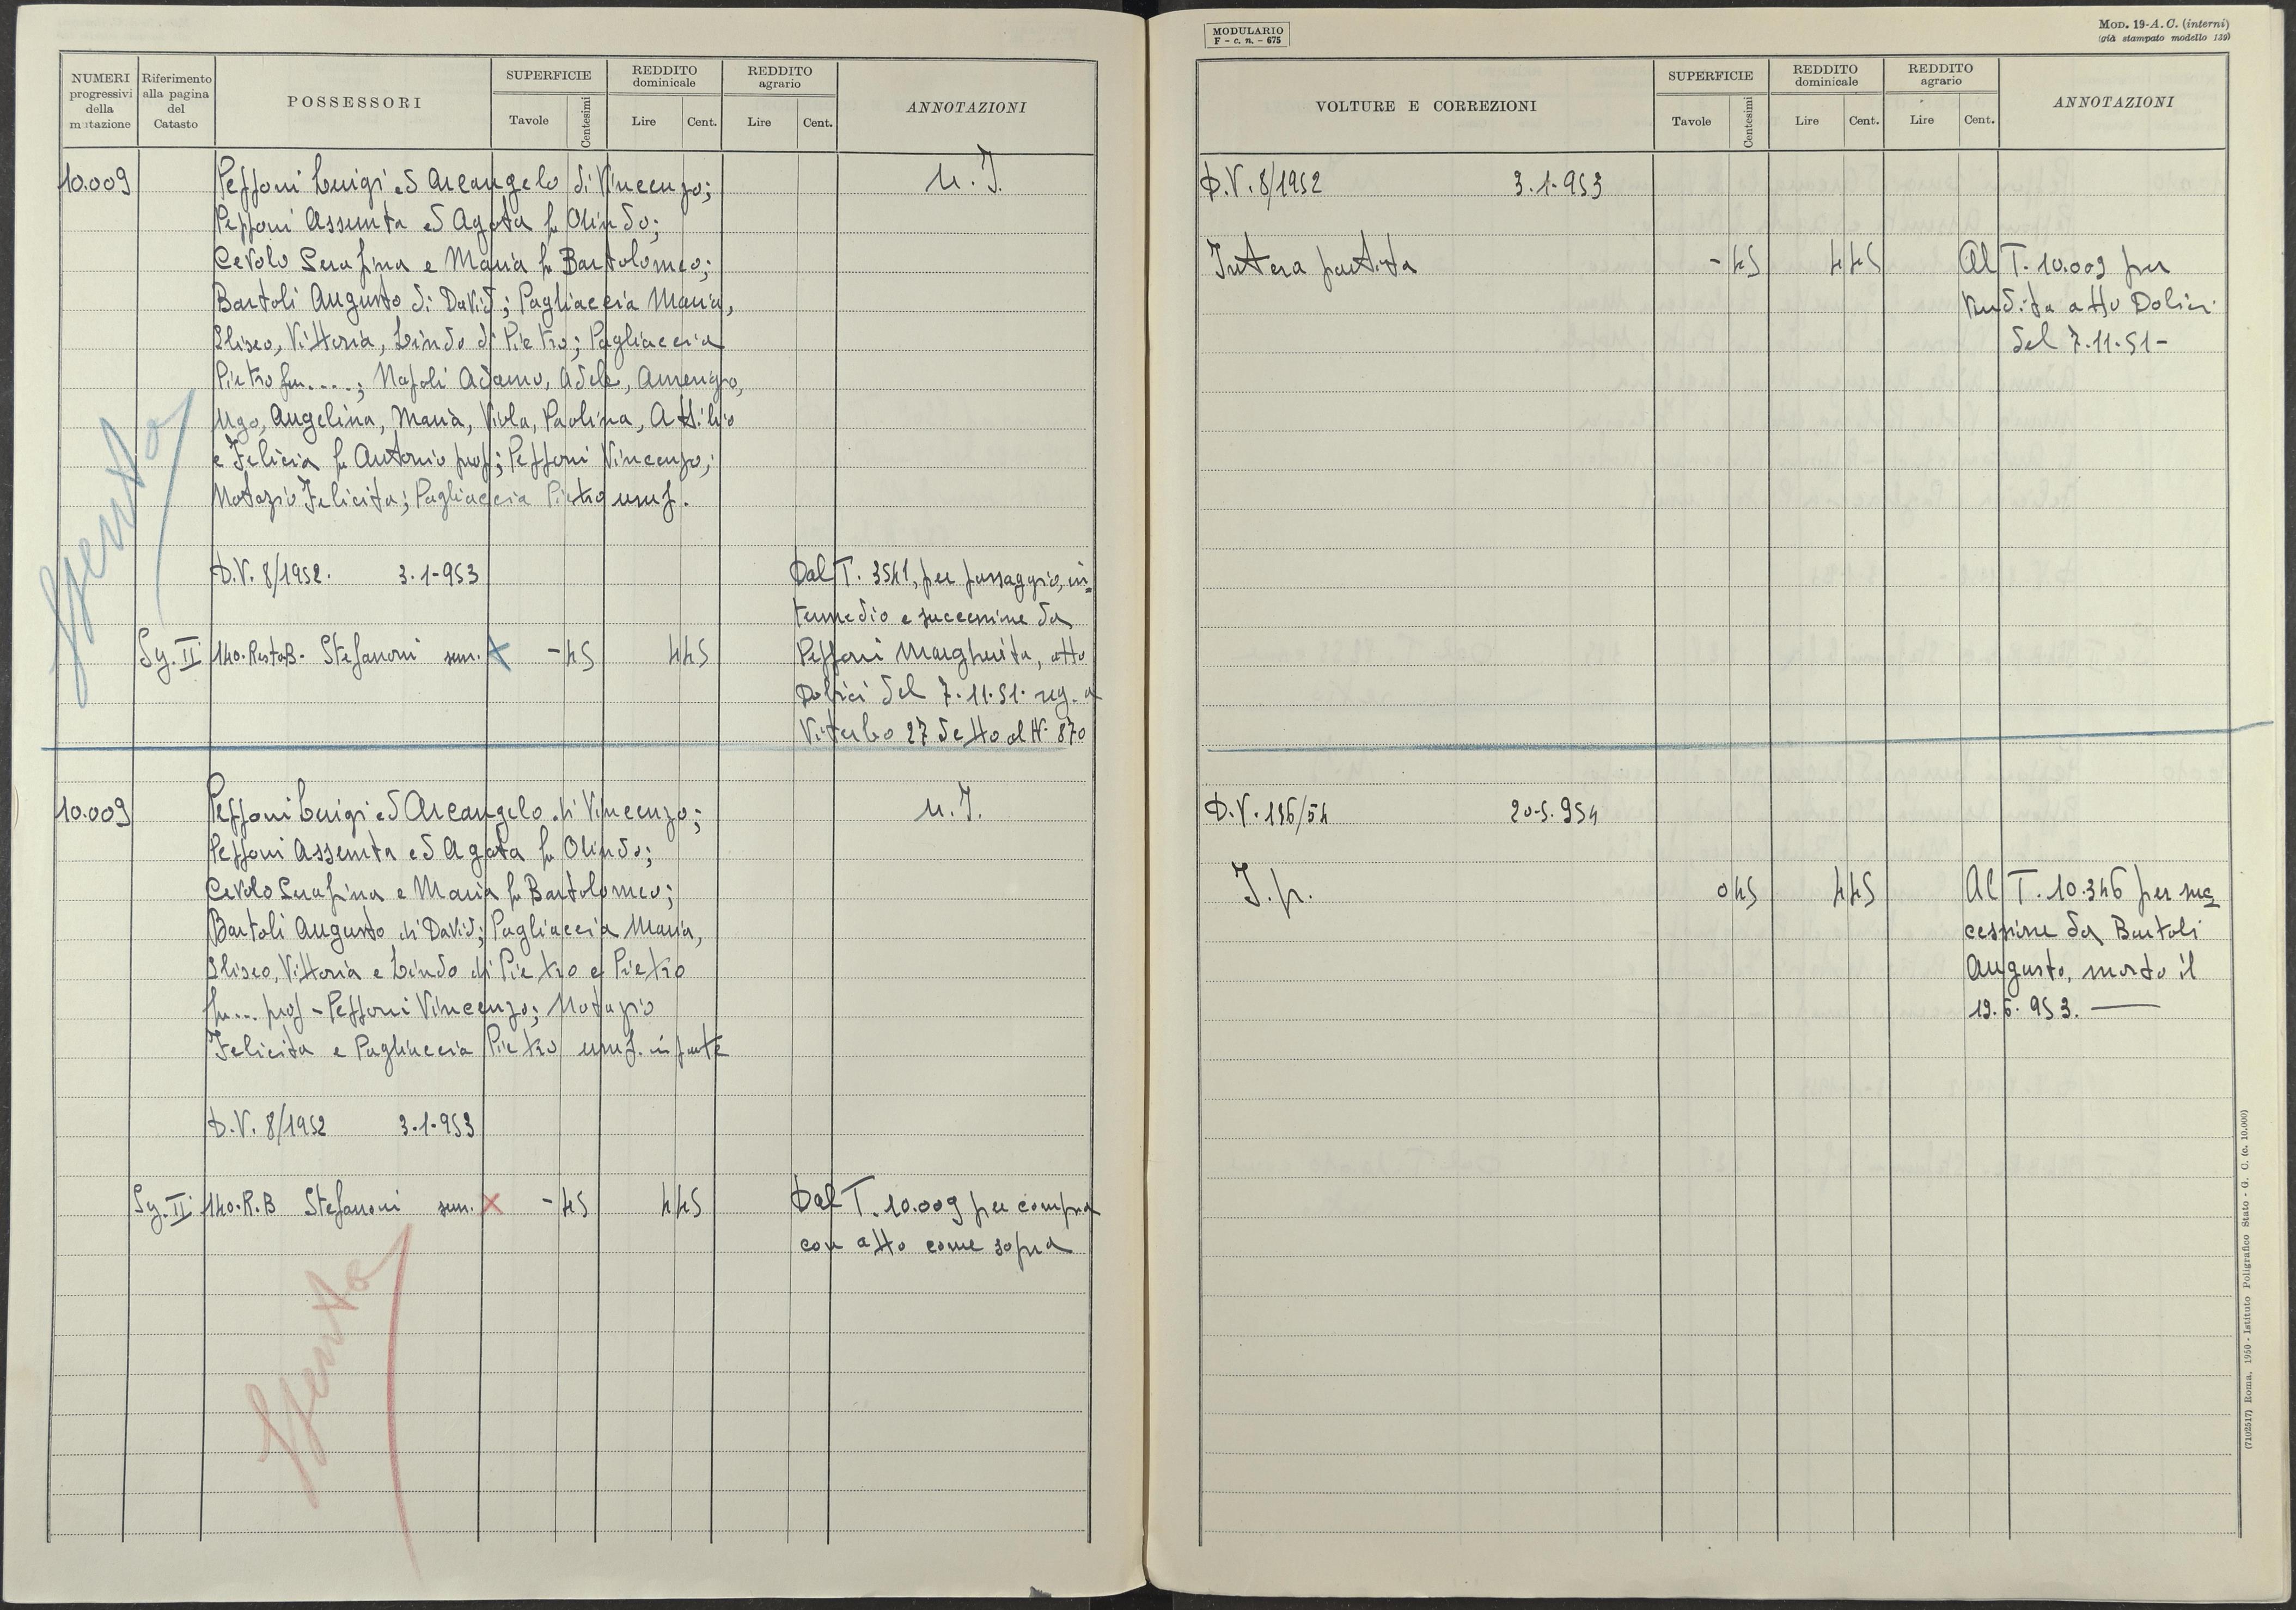 NUMERI progressivi della mutazione
Riferimento alla pagina del Catasto
POSSESSORI
SUPERFICIE
Tavole
Centesimi
REDDITO dominicale
Lire
Cent.
REDDITO agrario
Lire
Cent.
ANNOTAZIONI
10.009
Pessoni Luigi ed Arcangelo di Vincenzo;
u. I.
Pessoni Assunta ed Agata fu Olindo;
Cevolo Serafina e Maria fu Bartolomeo;
Bartoli Augusto di David; Pagliaccia Maria,
Eliseo, Vittoria, Lindo di Pietro; Pagliaccia
Pietro fu....; Napoli Adamo, Adele, Amerigo,
Ugo, Angelina, Maria, Viola, Paolina, Attilio
e Felicia fu Antonio prop; Pessoni Vincenzo;
Notazio Felicita; Pagliaccia Pietro usuf.
Spenta
D.V. 8/1952. 3.1-953
Dal T. 3541, per passaggio, in=
termedio e successione da
Sz. II 140.RestoB- Stefanoni sem. X -45 4 45
Pessoni Margherita, atto
Dolici del 7.11.51. reg. a
Viterbo 27 detto al N. 870
10.009
Pessoni Luigi ed Arcangelo di Vincenzo;
u. I.
Pessoni Assunta ed Agata fu Olindo;
Cevolo Serafina e Maria fu Bartolomeo;
Bartoli Augusto di David; Pagliaccia Maria,
Eliseo, Vittoria e Lindo di Pietro e Pietro
fu... prop - Pessoni Vincenzo; Notazio
Felicita e Pagliaccia Pietro usuf. in parte
D.V. 8/1952 3-1-953
Sz. II 140.R.B Stefanoni sem. X -45 4 45
Dal T. 10.009 per compra
con atto come sopra
Spenta
MODULARIO
F - c. n. - 675
MOD. 19-A. C. (interni)
(già stampato modello 139)
VOLTURE E CORREZIONI
SUPERFICIE
Tavole
Centesimi
REDDITO dominicale
Lire
Cent.
REDDITO agrario
Lire
Cent.
ANNOTAZIONI
D.V. 8/1952 3.1-953
Intera partita -45 4 45 Al T. 10.009 per
vendita atto Dolici
del 7.11.51-
D.V. 196/54 20-5.954
I.p. 0 45 4 45 Al T. 10.346 per suc
cessione da Bartoli
Augusto, morto il
19.6.953.—
(7102517) Roma, 1950 - Istituto Poligrafico Stato - G. C. (c. 10.000)